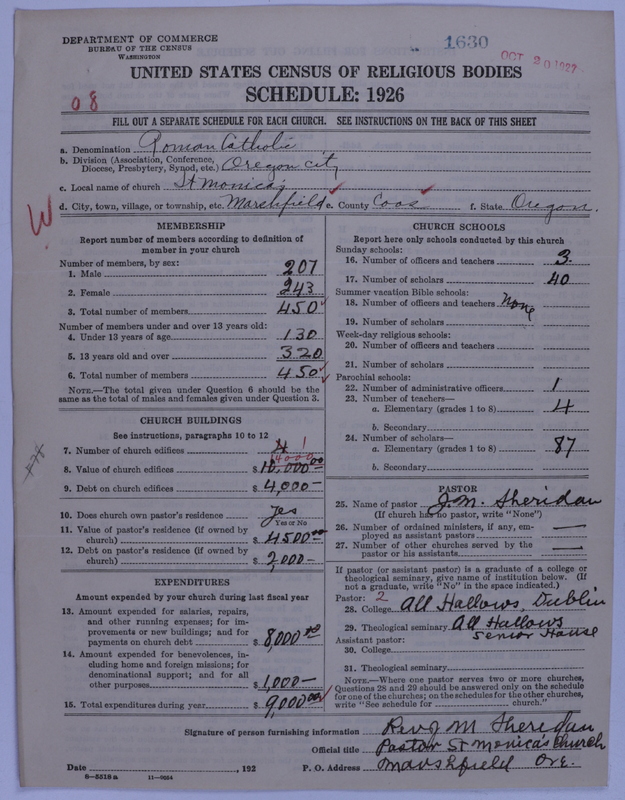 DEPARTMENT OF COMMERCE
BUREAU OF THE CENSUS
WASHINGTON
1630
OCT 20 1927
UNITED STATES CENSUS OF RELIGIOUS BODIES
SCHEDULE: 1926
08
FILL OUT A SEPARATE SCHEDULE FOR EACH CHURCH. SEE INSTRUCTIONS ON THE BACK OF THIS SHEET
a. Denomination Roman Catholic
b. Division (Association, Conference,
Diocese, Presbytery, Synod, etc.) Oregon City
c. Local name of church St Monica's
d. City, town, village, or township, etc. Marshfield e. County Coos f. State Oregon.
W
MEMBERSHIP
Report number of members according to definition of
member in your church
Number of members, by sex:
1. Male 207
2. Female 243
3. Total number of members 450
Number of members under and over 13 years old:
4. Under 13 years of age 130
5. 13 years old and over 320
6. Total number of members 450
NOTE.—The total given under Question 6 should be the
same as the total of males and females given under Question 3.
CHURCH BUILDINGS
See instructions, paragraphs 10 to 12
7. Number of church edifices 4 1
4000
8. Value of church edifices $ 10,000 00
9. Debt on church edifices $ 4,000 —
10. Does church own pastor's residence yes
Yes or No
11. Value of pastor's residence (if owned by
church) $ 4500 00
12. Debt on pastor's residence (if owned by
church) $ 2,000 —
EXPENDITURES
Amount expended by your church during last fiscal year
13. Amount expended for salaries, repairs,
and other running expenses; for im-
provements or new buildings; and for
payments on church debt $ 8,000 00
14. Amount expended for benevolences, in-
cluding home and foreign missions; for
denominational support; and for all
other purposes $ 1,000 —
15. Total expenditures during year $ 9,000 00
CHURCH SCHOOLS
Report here only schools conducted by this church
Sunday schools:
16. Number of officers and teachers 3.
17. Number of scholars 40
Summer vacation Bible schools:
18. Number of officers and teachers None
19. Number of scholars
Week-day religious schools:
20. Number of officers and teachers
21. Number of scholars
Parochial schools:
22. Number of administrative officers 1
23. Number of teachers—
a. Elementary (grades 1 to 8) 4
b. Secondary
24. Number of scholars—
a. Elementary (grades 1 to 8) 87
b. Secondary
PASTOR
25. Name of pastor J. M. Sheridan
(If church has no pastor, write "None")
26. Number of ordained ministers, if any, em-
ployed as assistant pastors —
27. Number of other churches served by the
pastor or his assistants —
If pastor (or assistant pastor) is a graduate of a college or
theological seminary, give name of institution below. (If
not a graduate, write "No" in the space indicated.)
Pastor: 2
28. College All Hallows, Dublin
29. Theological seminary All Hallows
Senior House
Assistant pastor:
30. College
31. Theological seminary
NOTE.—Where one pastor serves two or more churches,
Questions 28 and 29 should be answered only on the schedule
for one of the churches; on the schedules for the other churches,
write "See schedule for church."
Signature of person furnishing information Rev J M Sheridan
Official title Pastor St Monica's Church
Date , 192 P. O. Address Marshfield Ore.
8—5518a 11—9054